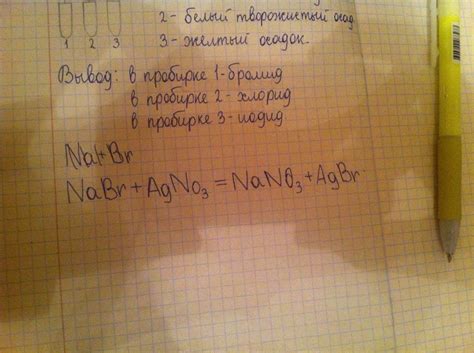 2- белый творожистый осад
1 2 3 3- жёлтый осадок.
Вывод: в пробирке 1-бромид
в пробирке 2-хлорид
в пробирке 3-иодид
NaBr+AgNO₃=NaNO₃+AgBr